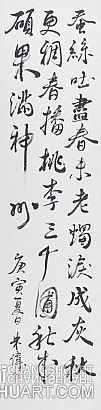 蚕絲吐盡春未老燭淚成灰秋
更稠春播桃李三千圃秋来
碩果滿神州
庚寅夏日朱偉